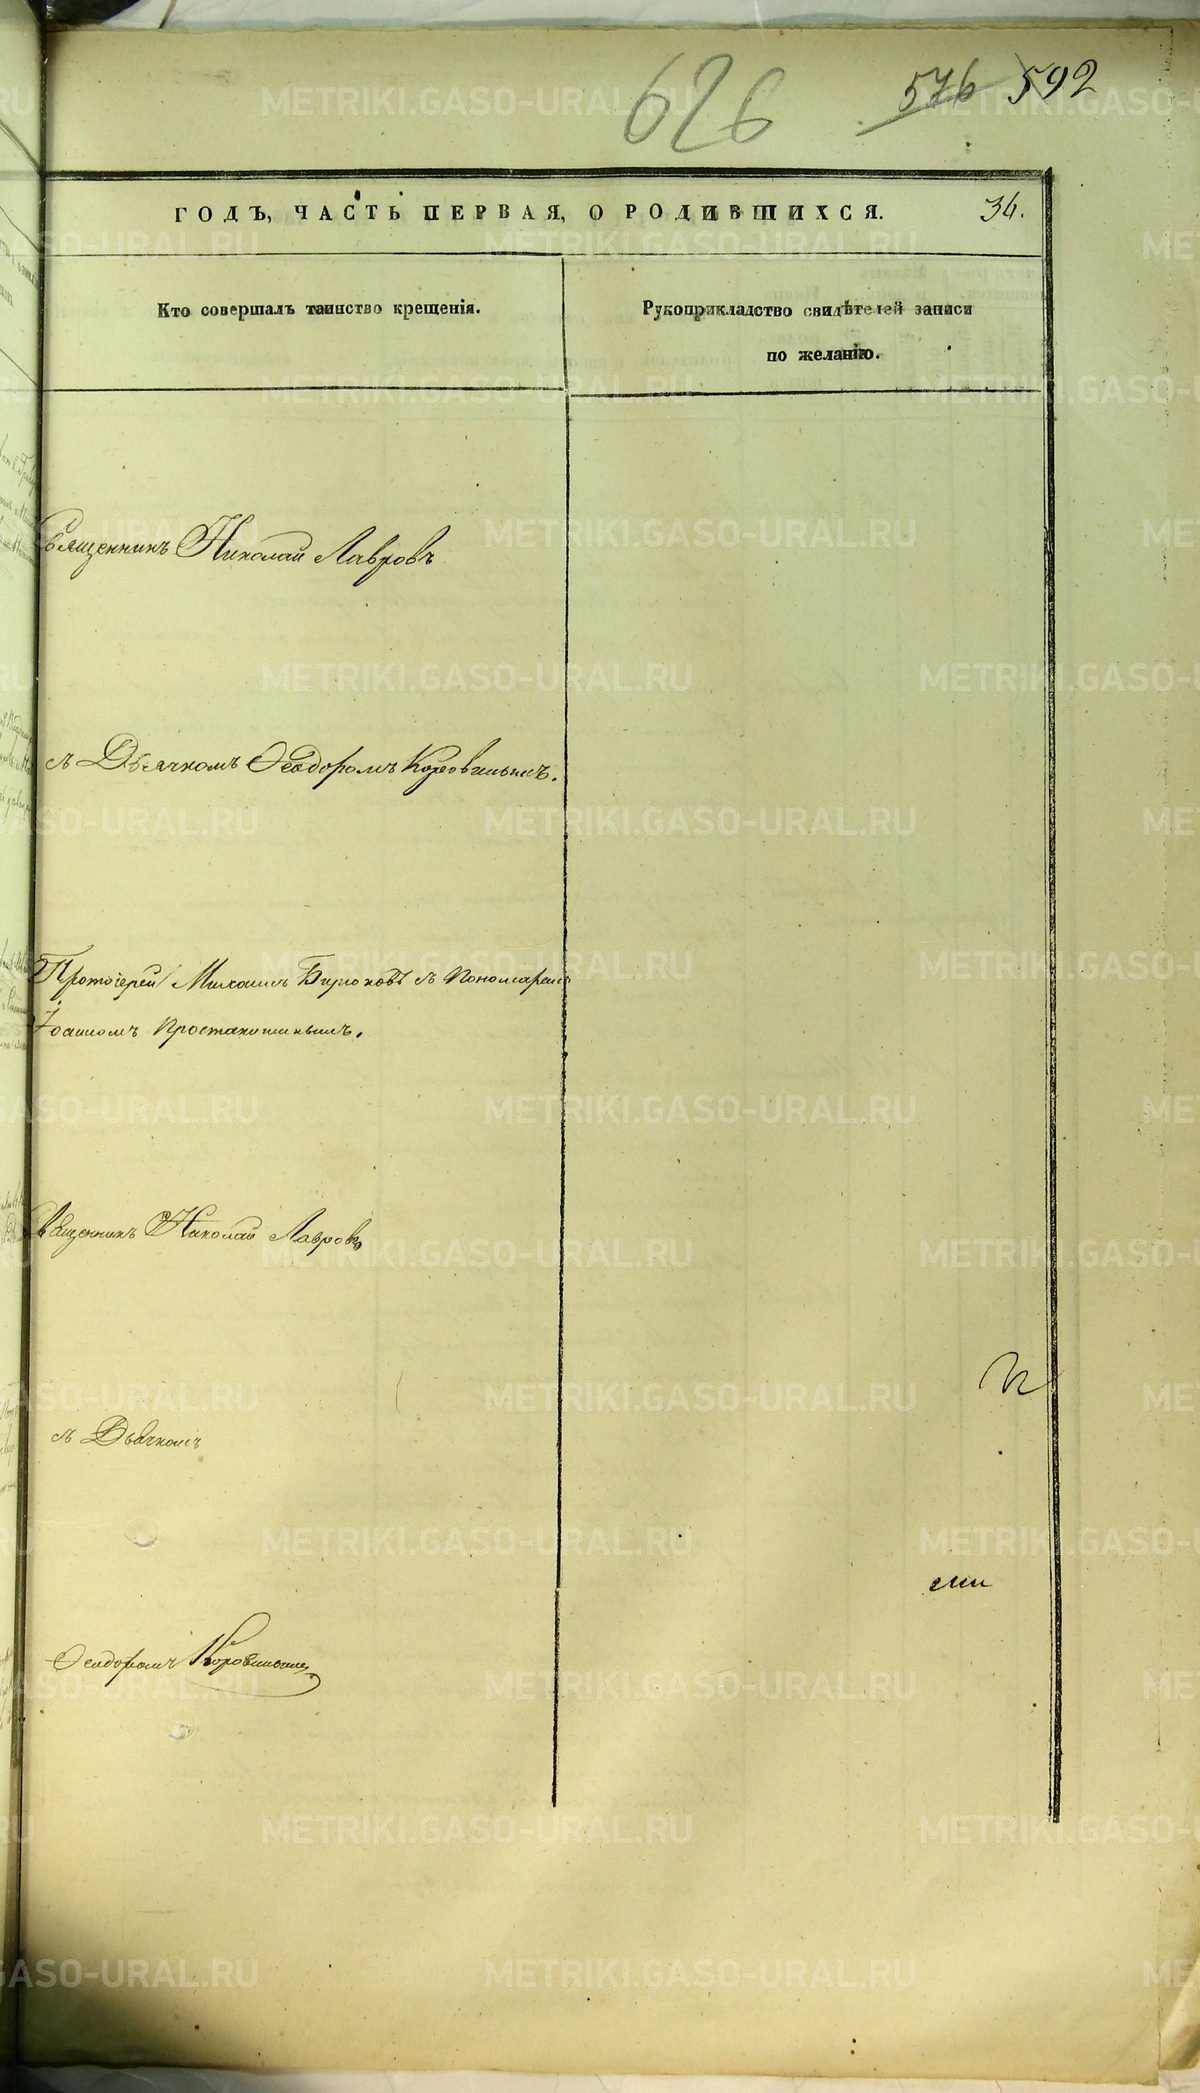 626 576 592
ГОДЪ, ЧАСТЬ ПЕРВАЯ, О РОДИВШИХСЯ. 34.
Кто совершалъ таинство крещенія.
Рукоприкладство свидѣтелей записи
по желанію.
Священникъ Николай Лавровъ
съ Дьячкомъ Ѳеодоромъ Коровинымъ.
Протоіерей Михаилъ Бирюковъ съ Пономаремъ
Іоанномъ
Священникъ Николай Лавровъ
съ Дьячкомъ
Ѳеодоромъ Коровинымъ
METRIKI.GASO-URAL.RU